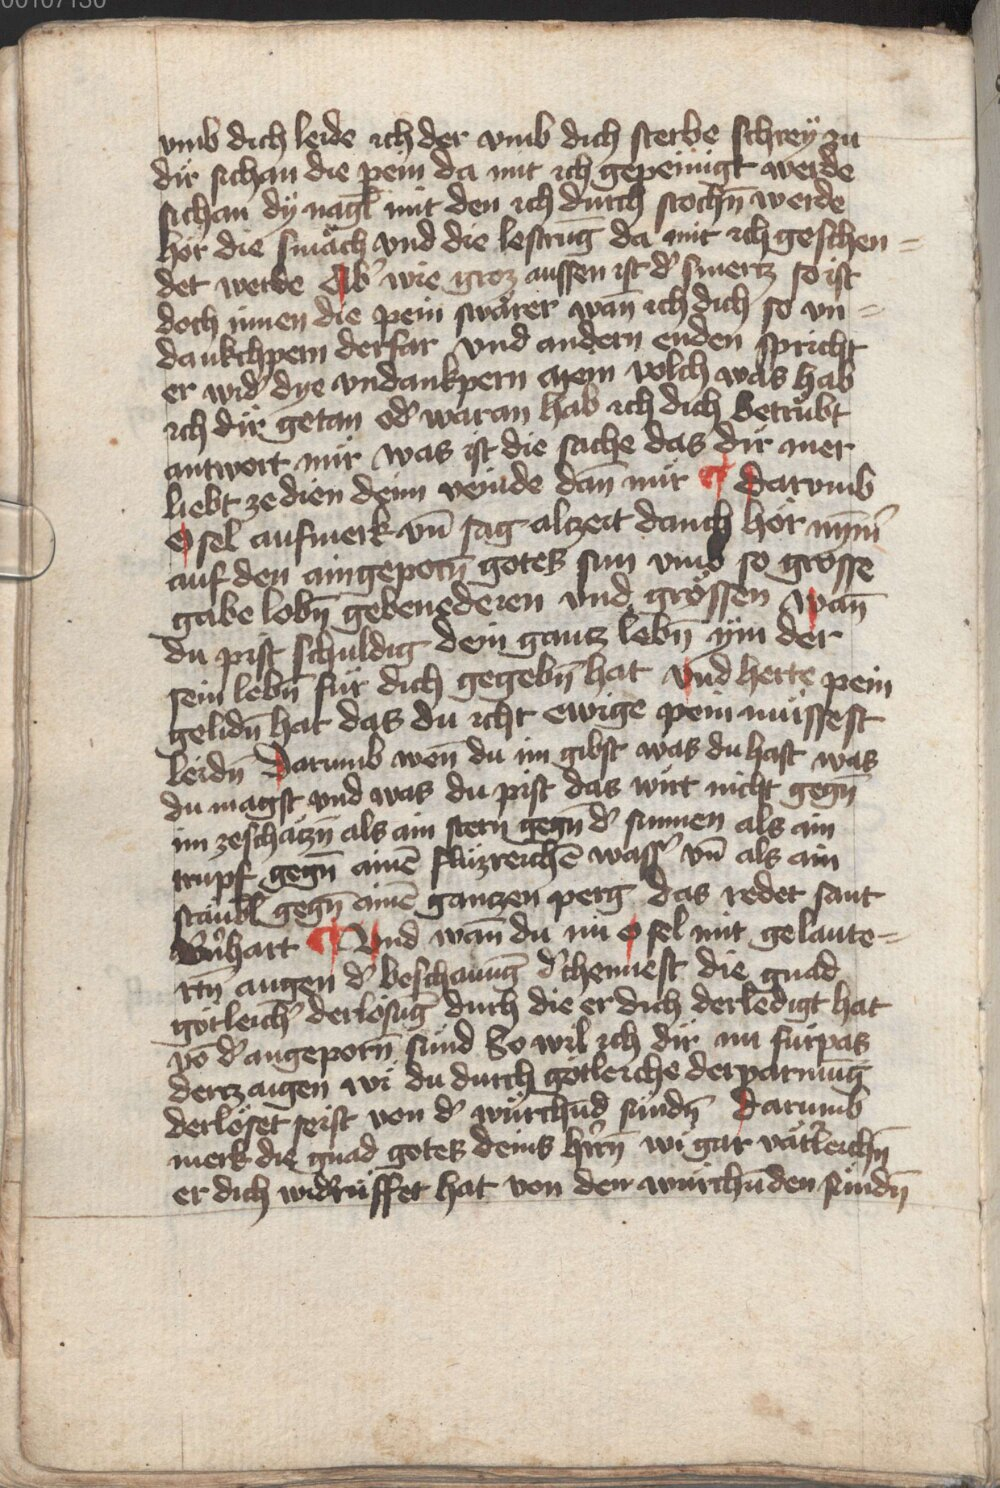 00107130
vmb dich leide ich der vmb dich sterbe schrey zu
dir sichan die pein da mit ich gepeinigt werde
sichan dy nagl mit den ich durch stochn̄ werde
hor die smäch vnd die lestrūg da mit ich geschen=
det werde Ab' wie groz aussen ist d' smertz so ist
doch innen die pein swärer wan̄ ich dich so vn=
dankchpern derfar vnd andern enden spricht
er wid' dye vndankpern mein volch was hab
ich dir getan od' waran hab ich dich betrubt
antwort mir was ist die sache das dir mer
liebt ze dien dein veinde dan̄ mir ¶ Darvmb
o sel aufmerk vn̄ sag alzeit danch hör nym̄'
auf den aingeporn̄ gotes sun vmb so grosse
gabe lobn̄ gebenederen vnd grössen wan̄
du pist schuldig dein gantz lebn̄ ym der
sein lebn̄ für dich gegebn̄ hat vnd herte pein
gelidn̄ hat das du icht ewige pein müssest
leidn̄ Darumb wen̄ du im gibst was du hast was
du magst vnd was du pist das wirt nicht gegn̄
im zeschätzn̄ als ain stern gegn̄ d' sunnen als ain
trupf gegn̄ ainē fluzreichē wass' vn̄ als ain
stäubl gegn̄ ainē gantzen perg das redet sant
Bn̄hart ¶ Vnd wan̄ du nu o sel mit gelaute=
rtn̄ augen d' beschauūg d'chennest die gnad
götleich' derlosūg durch die er dich derledigt hat
vō d' angeporn̄ sünd So wil ich dir nu fürpas
dertzaigen wi du durch götleiche derparmūg
derlöset seist von d' würchūd sündn̄ Darumb
merk die gnad gotes deins hr̄rn̄ wi gar vätl'eichn̄
er dich wid'rüffet hat von den würchūden sündn̄